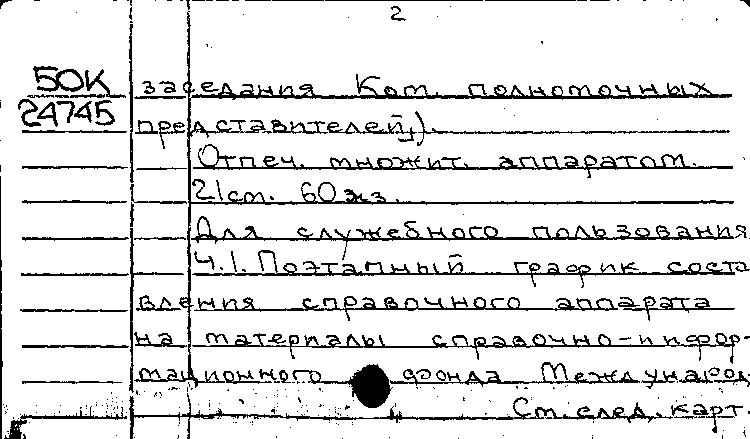 2
50К
24745
заседания Ком. полномочных
представителей).
Отпеч. множит. аппаратом.
21см. 60экз.
Для служебного пользования
Ч.1. Поэтапный график соста
вления справочного аппарата
на материалы справочно-инфор-
мационного фонда Международ
См. след. карт.